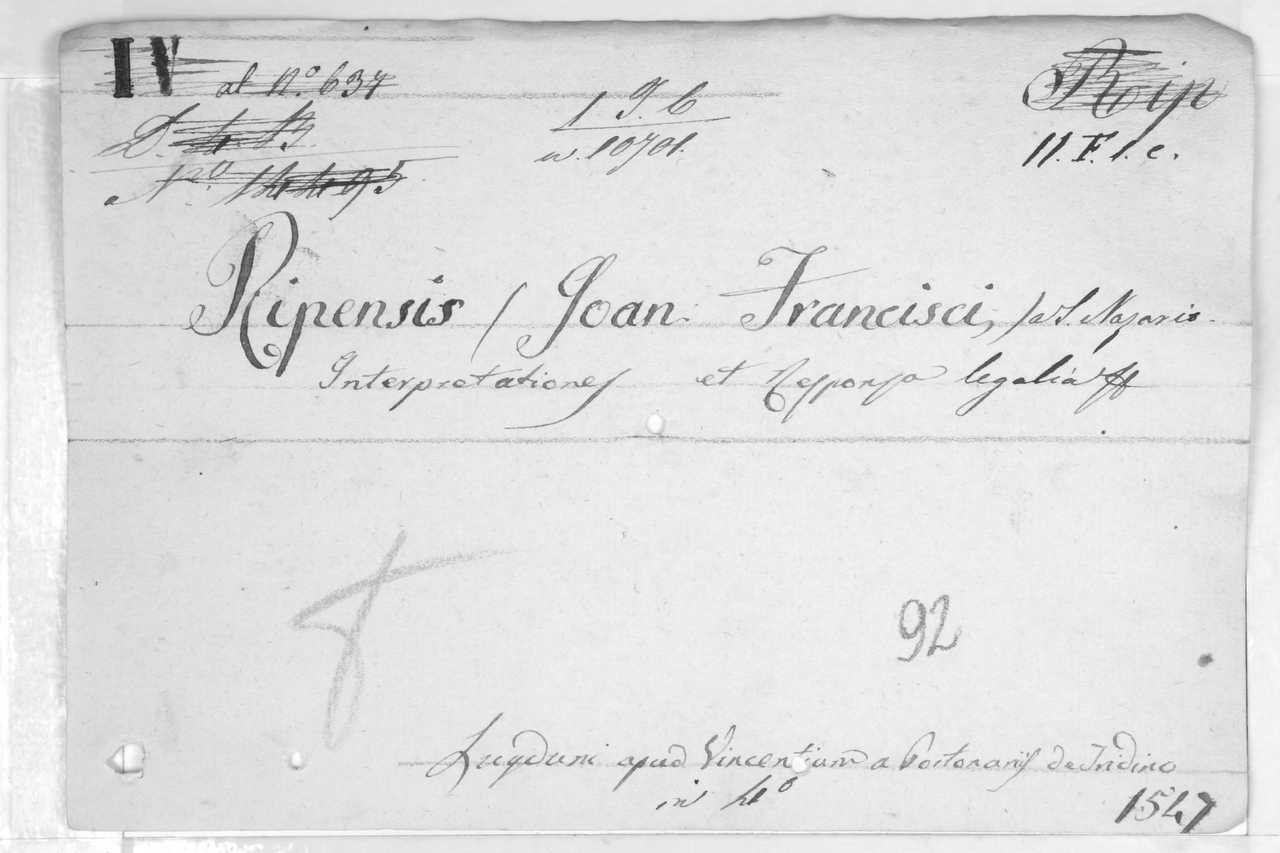 IV al No. 637
D. 4. B.
No. 144.95
1 9. 6
w. 10701.
Rip
11. F. 1. c.
Ripensis / Joan: Francisci, / a S. Nazario.
Interpretationes et Responsa legalia
92
Lugduni apud Vincentium a Portonariis de Tridino
in 4o
1547